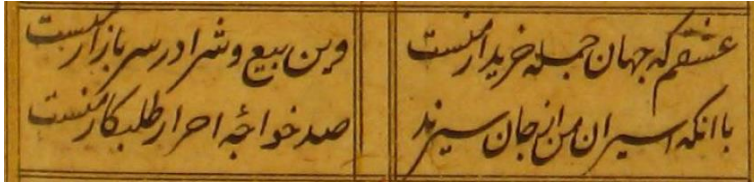 عشقم که جهان جمله خریدار منست
وین بیع و شرا در سر بازار منست
با انکه اسیران من از جان سیرند
صد خواجهٔ احرار طلبکار منست